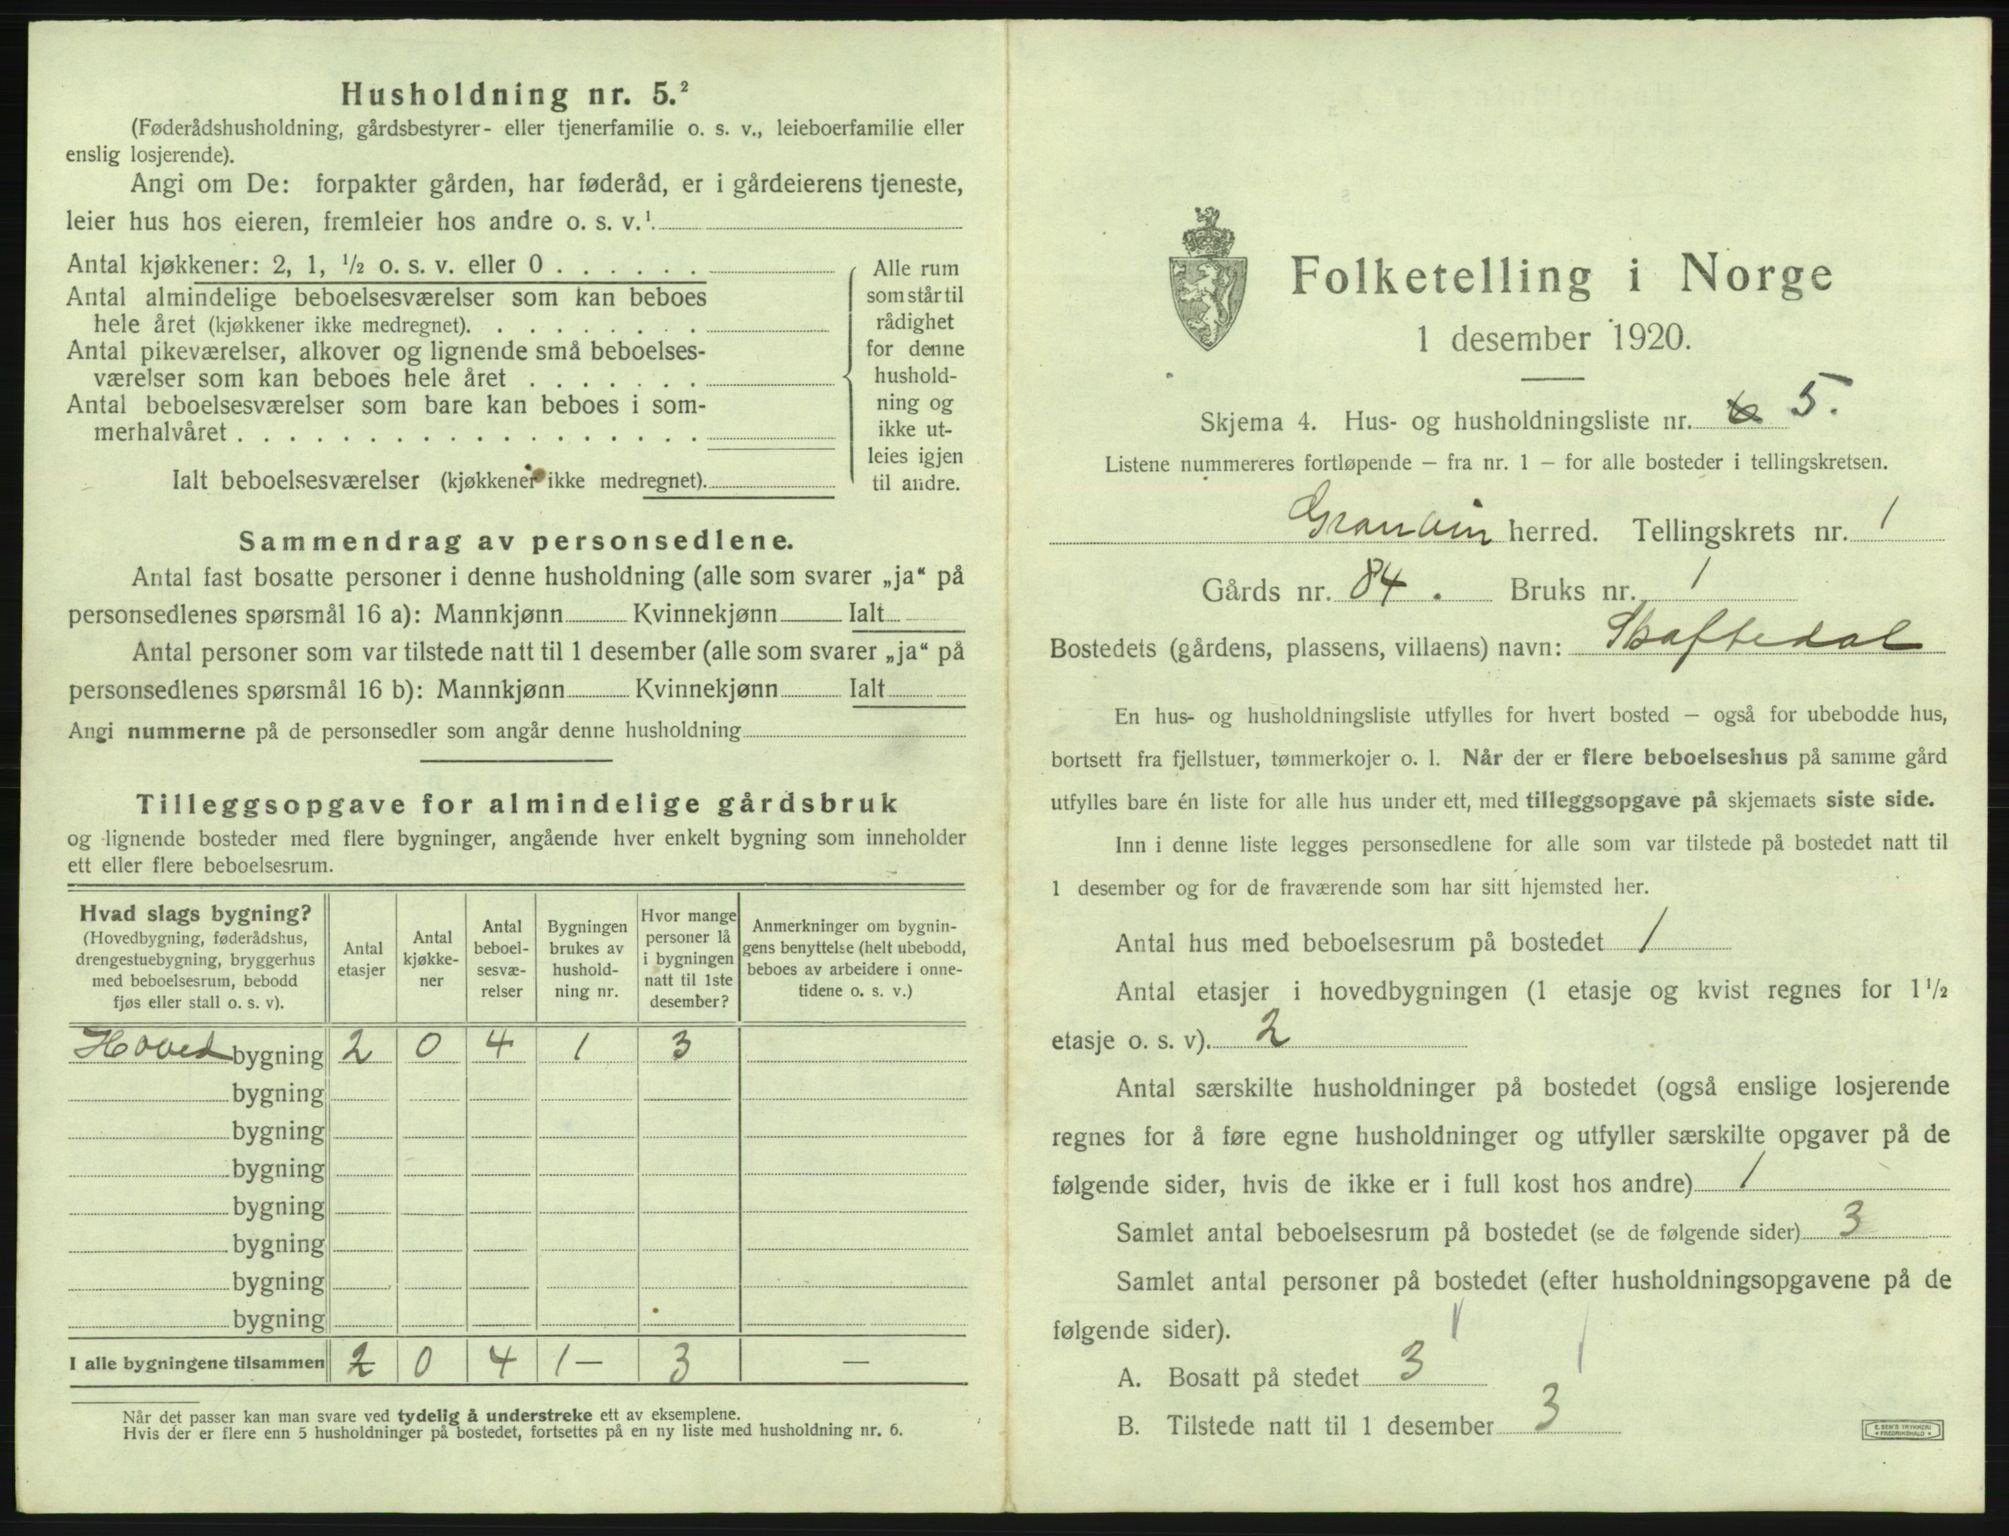 Husholdning nr. 5.²
(Føderådshusholdning, gårdsbestyrer- eller tjenerfamilie o. s. v., leieboerfamilie eller
enslig losjerende).
Angi om De: forpakter gården, har føderåd, er i gårdeierens tjeneste,
leier hus hos eieren, fremleier hos andre o. s. v.¹
Antal kjøkkener: 2, 1, ½ o. s. v. eller 0 . . . . . .
Antal almindelige beboelsesværelser som kan beboes
hele året (kjøkkener ikke medregnet). . . . . . . . .
Antal pikeværelser, alkover og lignende små beboelses-
værelser som kan beboes hele året . . . . . . .
Antal beboelsesværelser som bare kan beboes i som-
merhalvåret . . . . . . . . . . . . . . . . . .
Ialt beboelsesværelser (kjøkkener ikke medregnet).
Alle rum
som står til
rådighet
for denne
hushold-
ning og
ikke ut-
leies igjen
til andre.
Sammendrag av personsedlene.
Antal fast bosatte personer i denne husholdning (alle som svarer „ja“ på
personsedlenes spørsmål 16 a): Mannkjønn Kvinnekjønn Ialt
Antal personer som var tilstede natt til 1 desember (alle som svarer „ja“ på
personsedlenes spørsmål 16 b): Mannkjønn Kvinnekjønn Ialt
Angi nummerne på de personsedler som angår denne husholdning
Tilleggsopgave for almindelige gårdsbruk
og lignende bosteder med flere bygninger, angående hver enkelt bygning som inneholder
ett eller flere beboelsesrum.
Hvad slags bygning?
(Hovedbygning, føderådshus,
drengestuebygning, bryggerhus
med beboelsesrum, bebodd
fjøs eller stall o. s. v).
Antal
etasjer
Antal
kjøkke-
ner
Antal
beboel-
sesvæ-
relser
Bygningen
brukes av
hushold-
ning nr.
Hvor mange
personer lå
i bygningen
natt til 1ste
desember?
Anmerkninger om bygnin-
gens benyttelse (helt ubebodd,
beboes av arbeidere i onne-
tidene o. s. v.)
Hovedbygning 2 0 4 1 3
bygning
bygning
bygning
bygning
bygning
bygning
bygning
I alle bygningene tilsammen 2 0 4 1– 3 —
Når det passer kan man svare ved tydelig å understreke ett av eksemplene.
Hvis der er flere enn 5 husholdninger på bostedet, fortsettes på en ny liste med husholdning nr. 6.
Folketelling i Norge
1 desember 1920.
Skjema 4. Hus- og husholdningsliste nr. 6 5.
Listene nummereres fortløpende — fra nr. 1 — for alle bosteder i tellingskretsen.
Granvin herred. Tellingskrets nr. 1
Gårds nr. 84. Bruks nr. 1
Bostedets (gårdens, plassens, villaens) navn: Skaftedal
En hus- og husholdningsliste utfylles for hvert bosted — også for ubebodde hus,
bortsett fra fjellstuer, tømmerkojer o. l. Når der er flere beboelseshus på samme gård
utfylles bare én liste for alle hus under ett, med tilleggsopgave på skjemaets siste side.
Inn i denne liste legges personsedlene for alle som var tilstede på bostedet natt til
1 desember og for de fraværende som har sitt hjemsted her.
Antal hus med beboelsesrum på bostedet 1
Antal etasjer i hovedbygningen (1 etasje og kvist regnes for 1½
etasje o. s. v). 2
Antal særskilte husholdninger på bostedet (også enslige losjerende
regnes for å føre egne husholdninger og utfyller særskilte opgaver på de
følgende sider, hvis de ikke er i full kost hos andre) 1
Samlet antal beboelsesrum på bostedet (se de følgende sider) 3
Samlet antal personer på bostedet (efter husholdningsopgavene på de
følgende sider).
A. Bosatt på stedet 3
B. Tilstede natt til 1 desember 3
E. SEM'S TRYKKERI
FREDRIKSHALD